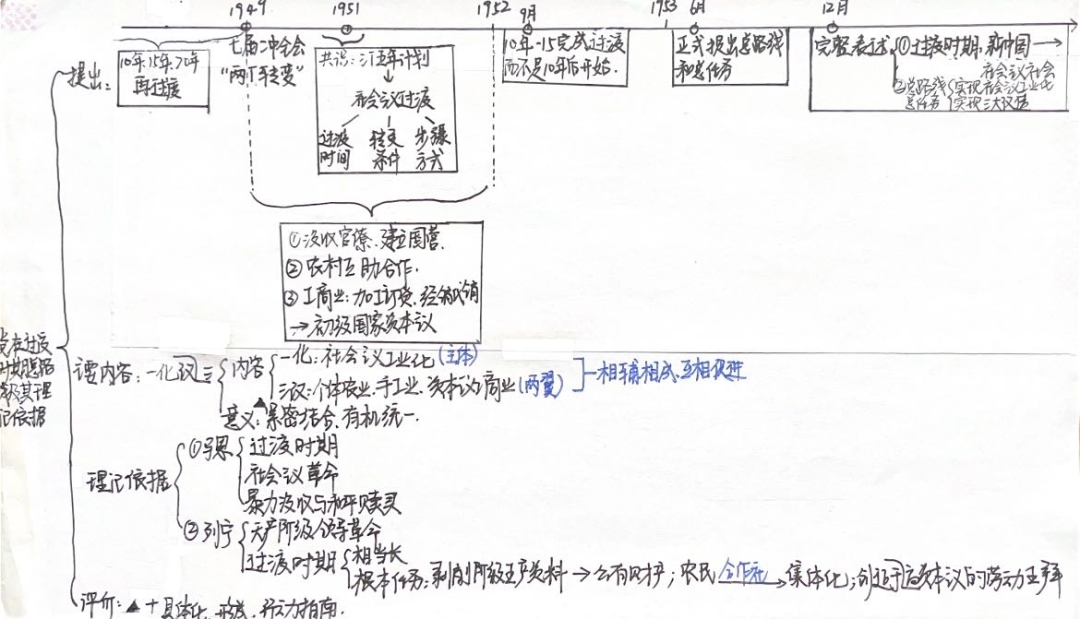 1949 1951 1952 9月 1953 6月 12月
提出：
10年、15年、20年
再过渡
七届二中全会
"两个转变"
共识：订五年计划
社会议过渡
过渡时间
转变条件
步骤方式
10年-15完成过渡
而不是10年后开始.
正式提出总路线
和总任务
完整表述
①过渡时期：新中国→
社会议社会
②总路线 总任务
实现社会议工业化
实现三大改造
①没收官僚、建立国营.
②农村互助合作.
③工商业：加工订货、经销代销
→初级国家资本议
过渡
时期总路线
及其理
论依据
内容：一化三改
内容
一化：社会议工业化(主体)
三改：个体农业、手工业、资本议工商业(两翼)
相辅相成、互相促进
▲意义：紧密结合、有机统一.
理论依据
①马恩
过渡时期
社会议革命
暴力没收与和平赎买
②列宁
无产阶级领导革命
过渡时期
相当长
根本任务：剥削阶级生产资料→公有财产；农民 合作社→集体化；创造高于资本议的劳动生产率
评价：▲+具体化、形成、行动指南.